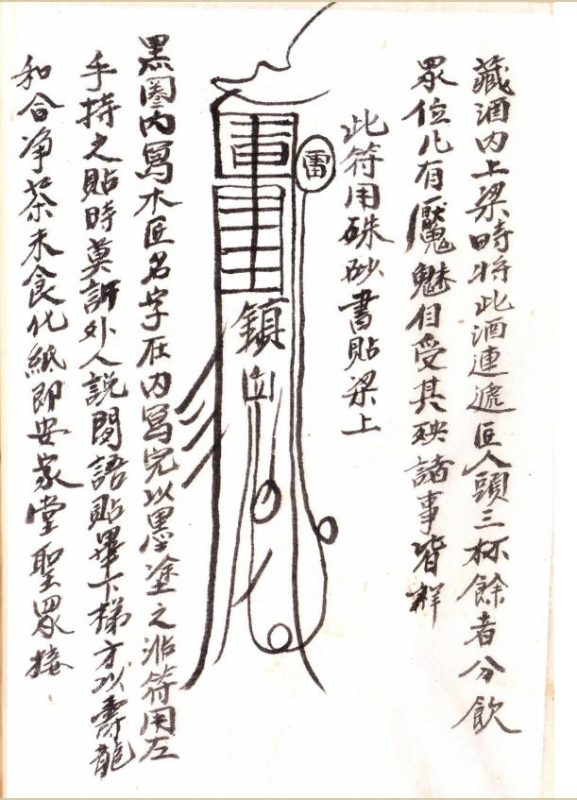 藏酒内上梁時将此酒連遞匠人頭三杯餘者分飲
眾位凡有魘魅自受其殃諸事皆祥
此符用硃砂書貼梁上
雷
鎮
黑圈内寫木匠名字在内寫完以墨塗之此符用左
手持之貼時莫許外人説閑語貼畢下梯方以壽龍
和合净茶米食化紙即安家堂聖眾接